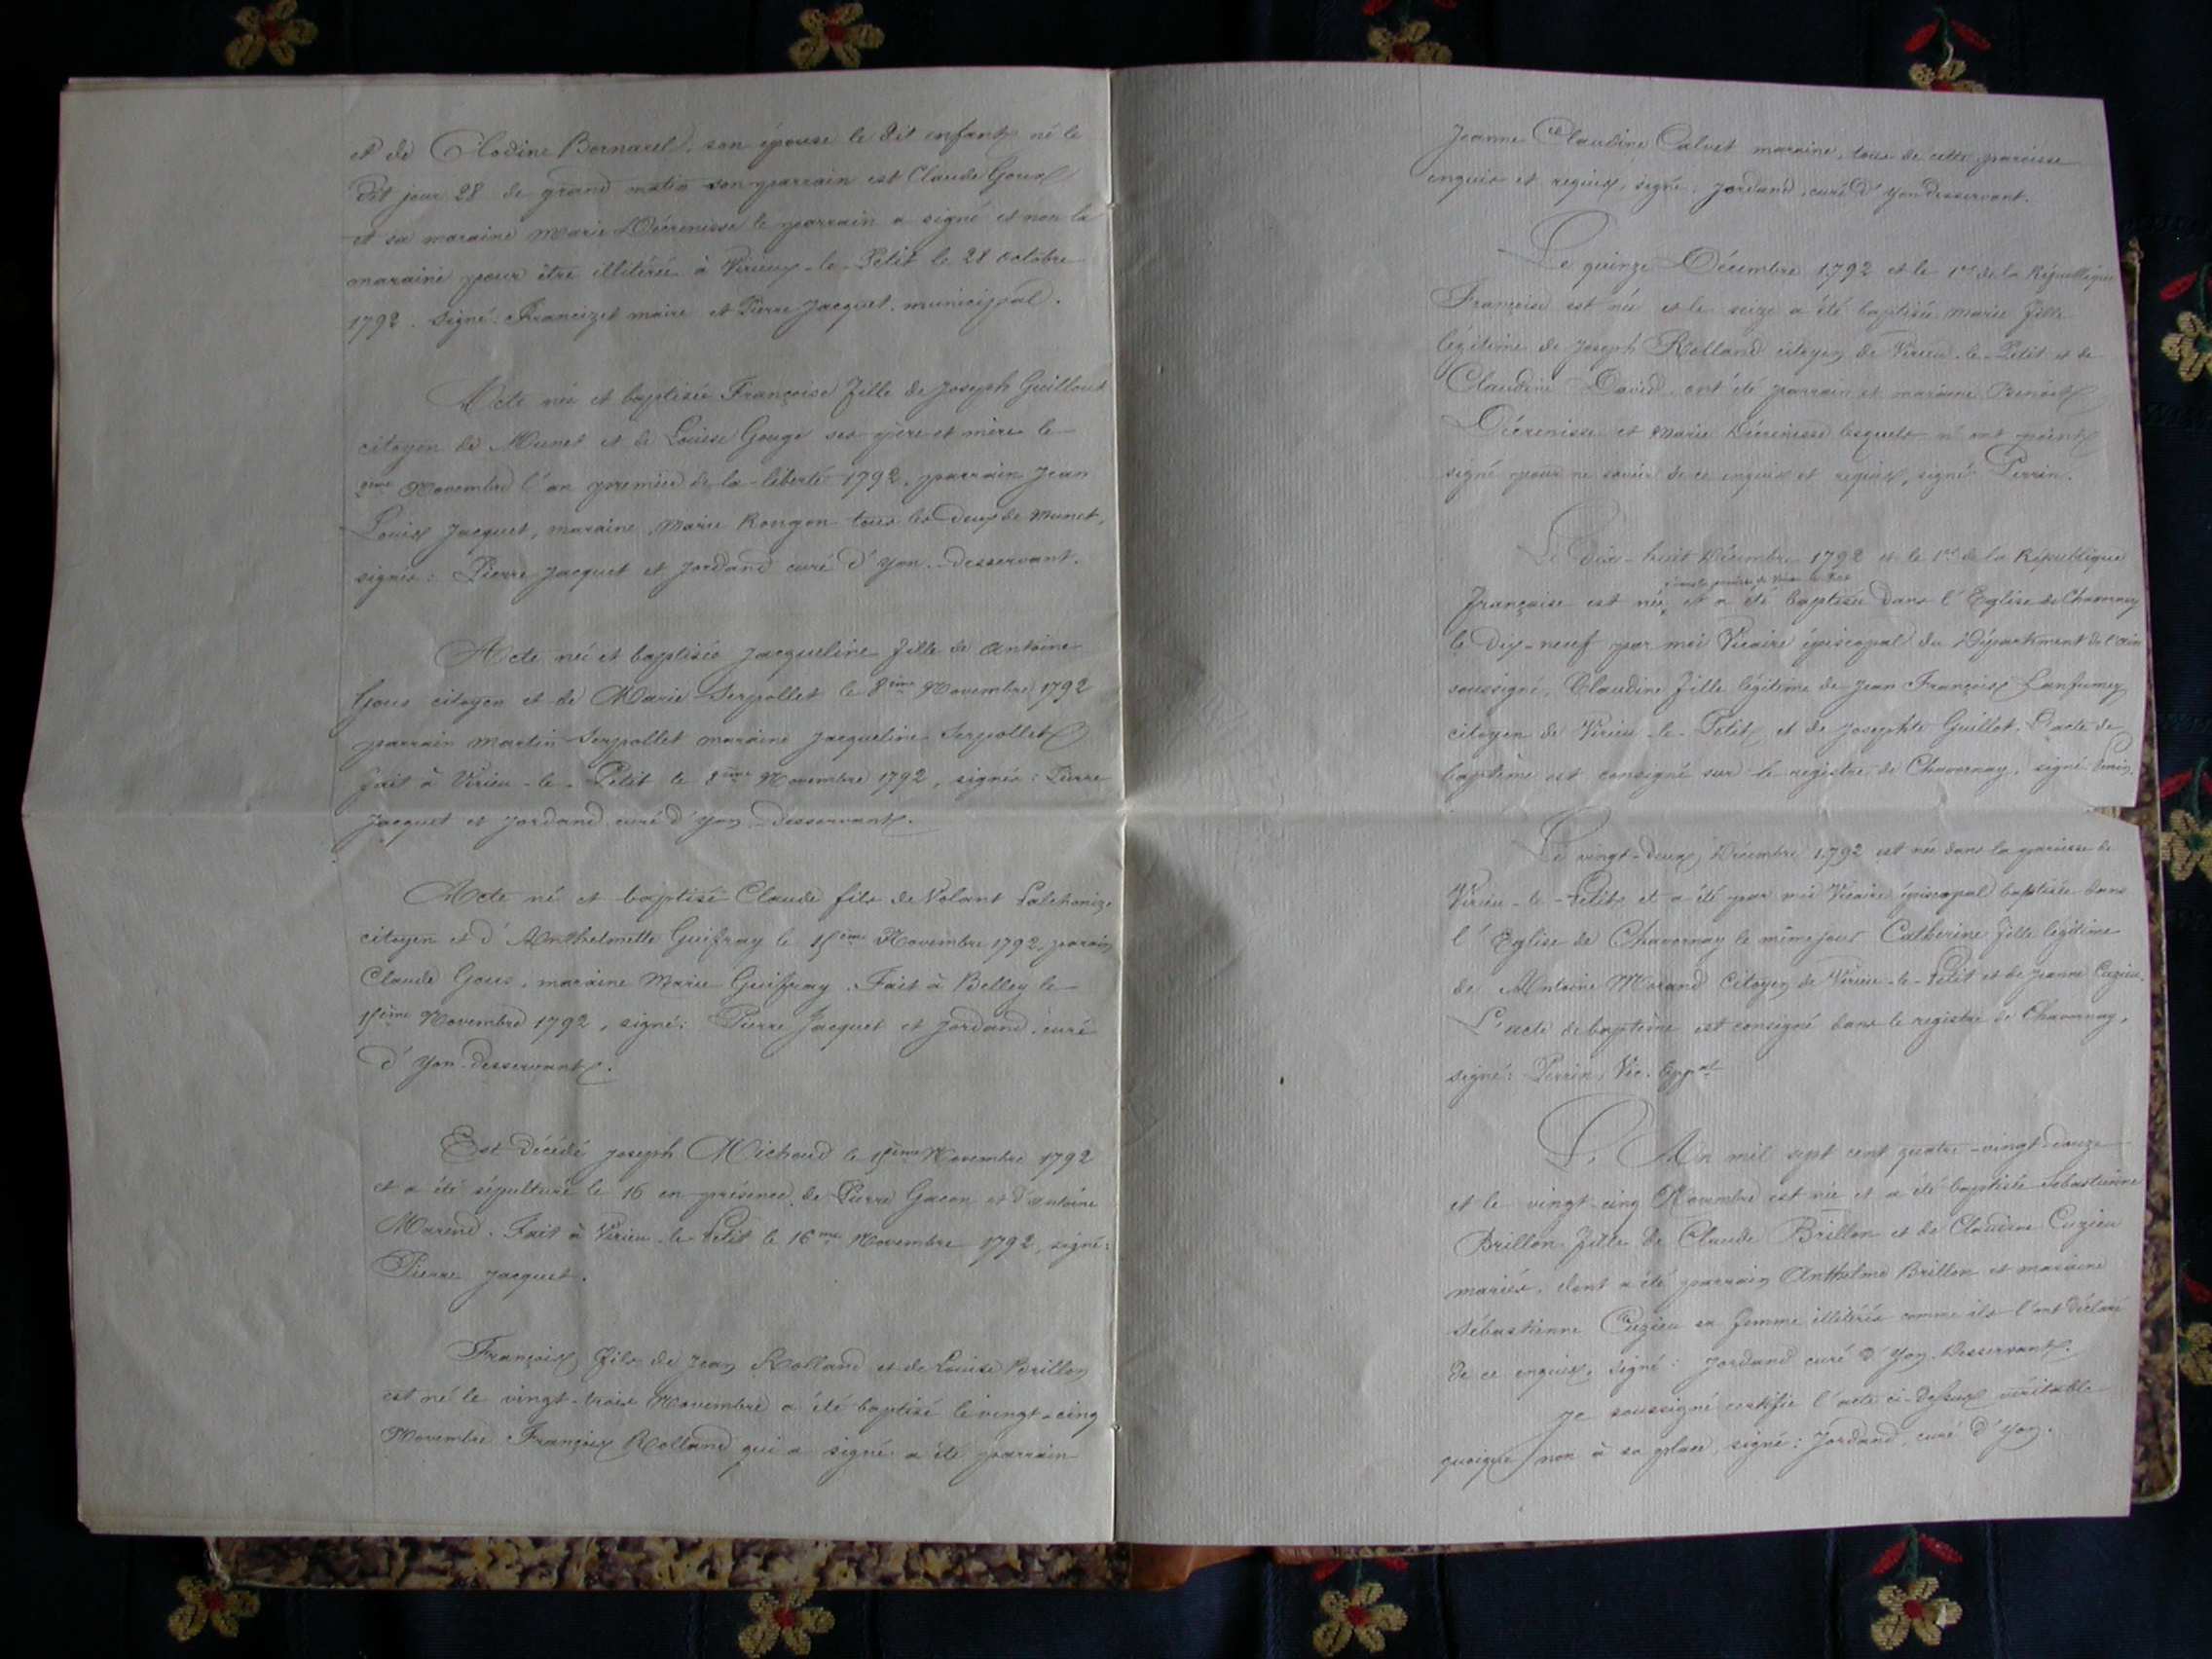 et de Clodine Bornarel, son épouse le dit enfant né le
dit jour 28 de grand matin son parrain est Claude Goux
et sa maraine Marie Décrenisse le parrain a signé et non la
maraine pour être illitérée à Virieux-le-Petit le 28 octobre
1792. Signé: Francizet maire et Pierre Jacquet, municipal.
Acte née et baptisée Françoise fille de Joseph Guilloud
citoyen de Munet et de Louise Gouge ses père et mère le
Novembre l'an premier de la liberté 1792, parrain Jean
Louis Jacquet, maraine, Marie Rongon tous les deux de Munet,
signés: Pierre Jacquet et Jordand curé d'Yon-desservant.
Acte née et baptisée Jacqueline fille de Antoine
Gous citoyen et de Marie Serpollet le 8ème Novembre 1792
parrain Martin Serpollet maraine Jacqueline Serpollet
fait à Virieu-le-Petit le 8ème Novembre 1792, signés: Pierre
Jacquet et Jordand curé d'Yon-desservant.
Acte né et baptisé Claude fils de Volant
citoyen et d'Anthelmette Guifray le 15ème Novembre 1792, parain
Claude Gous, maraine Marie Guifray. Fait à Belley le
15ème Novembre 1792, signé: Pierre Jacquet et Jordand, curé
d'Yon-desservant.
Est décédé Joseph Michoud le 15ème Novembre 1792
et a été sépulturé le 16 en présence de Pierre Gacon et d'Antoine
Marend. Fait à Virieu-le-Petit le 16me Novembre 1792, signé:
Pierre Jacquet.
François, fils de Jean Rolland et de Louise Brillon
est né le vingt-trois Novembre a été baptisé le vingt-cinq
Novembre François Rolland qui a signé a été parrain
Jeanne Claudine Calvet maraine, tous de cette paroisse
enquis et requis, signé: Jordand, curé d'Yon desservant.
Le quinze Décembre 1792 et le 1er de la République
Françoise est née et le seize a été baptisée Marie fille
légitime de Joseph Rolland citoyen de Virieu-le-Petit et de
Claudine David, ont été parrain et maraine Benoît
Décrenisse et Marie Décrenisse lesquels n'ont point
signé pour ne savoir de ce enquis et requis, signé Perrin.
Le dix-huit Décembre 1792 et le 1er de la République
Française est née, et a été baptisée dans l'Eglise de Chavornay
le dix-neuf par moi Vicaire épiscopal du Département de l'Ain
soussigné, Claudine fille légitime de Jean François Lanfumey
citoyen de Virieu-le-Petit et de Josephte Guillot. L'acte de
baptême est consigné sur le registre de Chavornay, signé Perrin.
Le vingt-deux Décembre 1792 est née dans la paroisse de
Virieu-le-Petit et a été par moi Vicaire épiscopal baptisée dans
l'Eglise de Chavornay le même jour Catherine fille légitime
de Antoine Morand Citoyen de Virieu-le-Petit et de Jeanne Cuzieu.
L'acte de baptême est consigné dans le registre de Chavornay,
signé: Perrin, Vic. Eppal
L'An mil sept cent quatre-vingt-douze
et le vingt-cinq Novembre est née et a été baptisée Sebastienne
Brillon fille de Claude Brillon et de Claudine Cuzieu
mariés, dont a été parrain Anthelme Brillon et maraine
Sébastienne Cuzieu sa femme illitérés comme ils l'ont déclaré
de ce enquis, signé: Jordand curé d'Yon. Desservant.
Je soussigné certifie l'acte ci-dessus véritable
quoique non à sa place, signé: Jordand, curé d'Yon.